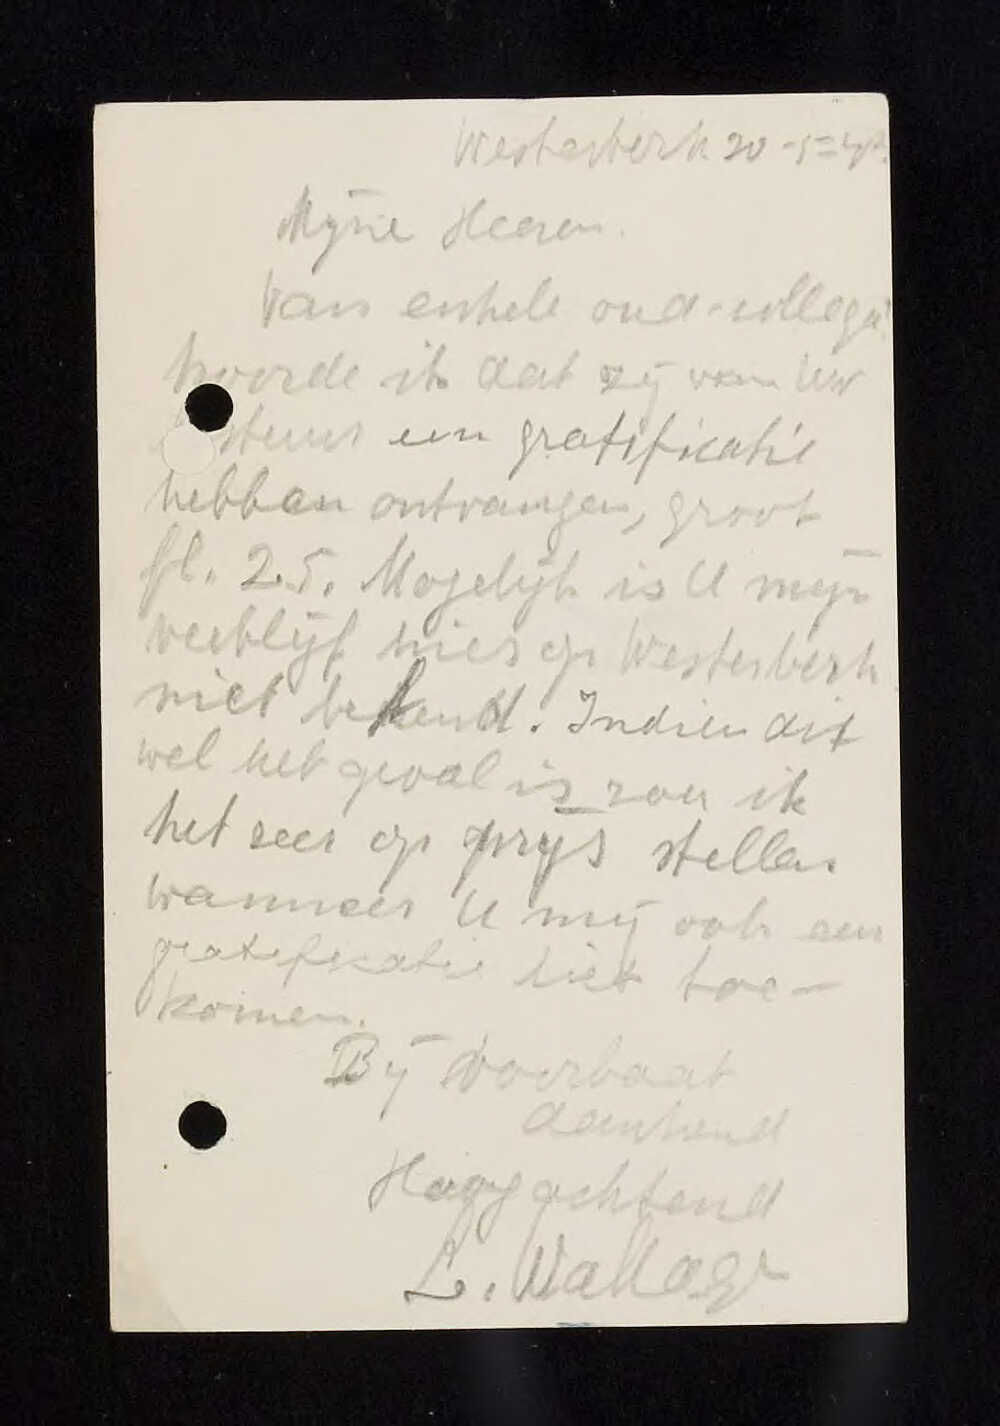 Westerbork 20-5-
Mijne Heeren.
Van enkele oud-collega's
hoorde ik dat zij van Uw
bestuur een gratificatie
hebben ontvangen, groot
fl. 2.5. Mogelijk is U mijn
verblijf hier op Westerbork
niet bekend. Indien dit
wel het geval is zou ik
het zeer op prijs stellen
wanneer U mij ook een
gratificatie liet toe-
komen.
Bij voorbaat
dankend
Hoogachtend
L. Wallage